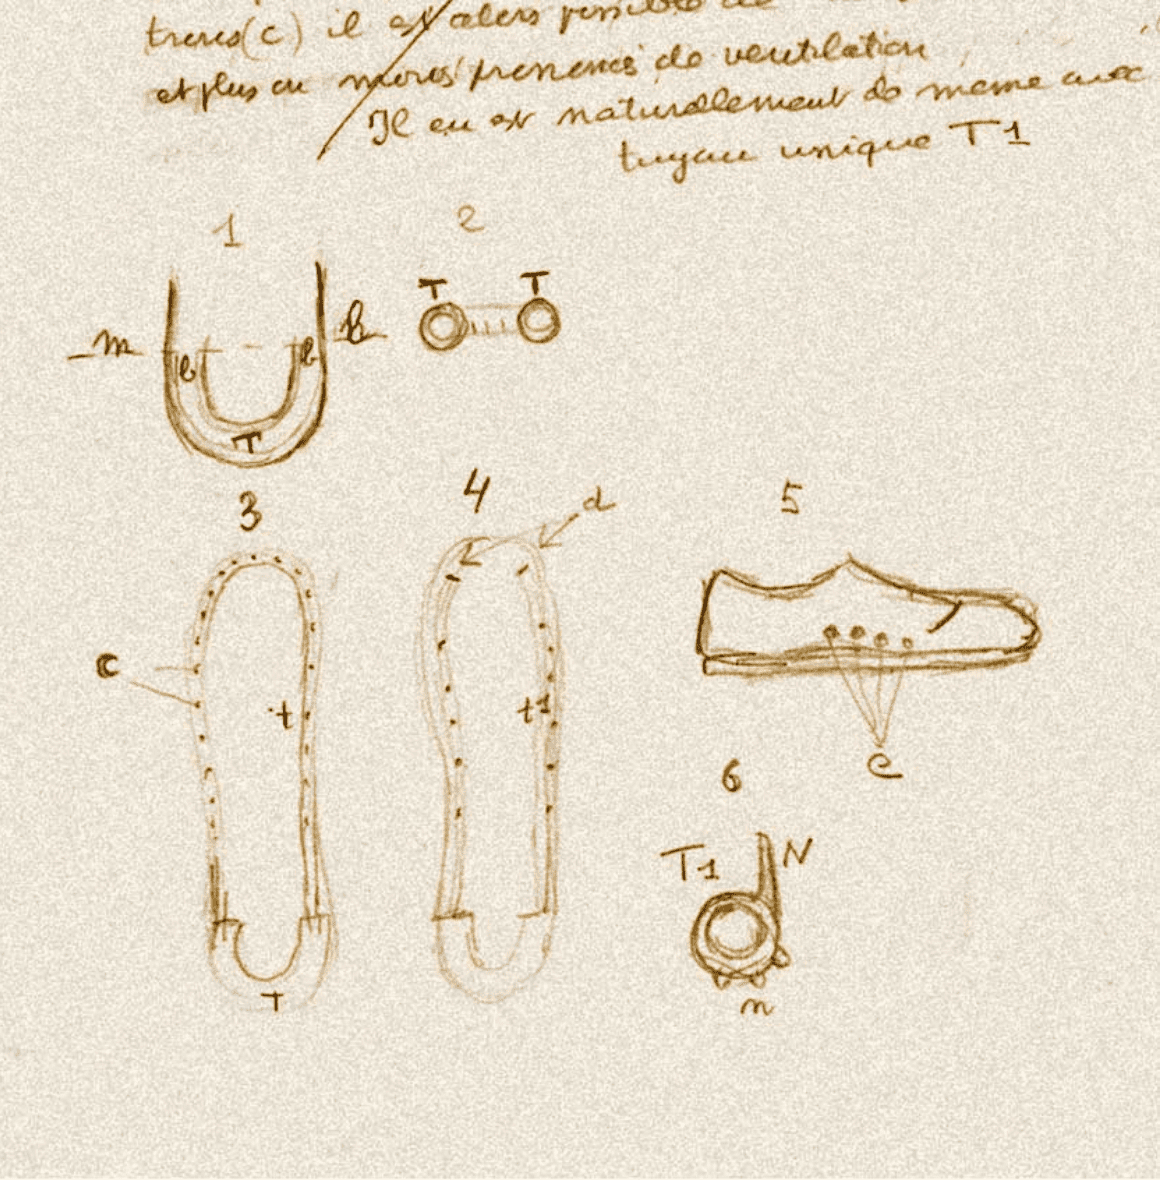 trous(c) il est alors possible de
et plus ou moins prononcé de ventilation
Il en est naturellement de même avec
tuyau unique T1
1
2
T T
m b
b b
T
3
4
d
5
c
t
t1
e
6
T1 N
T
n